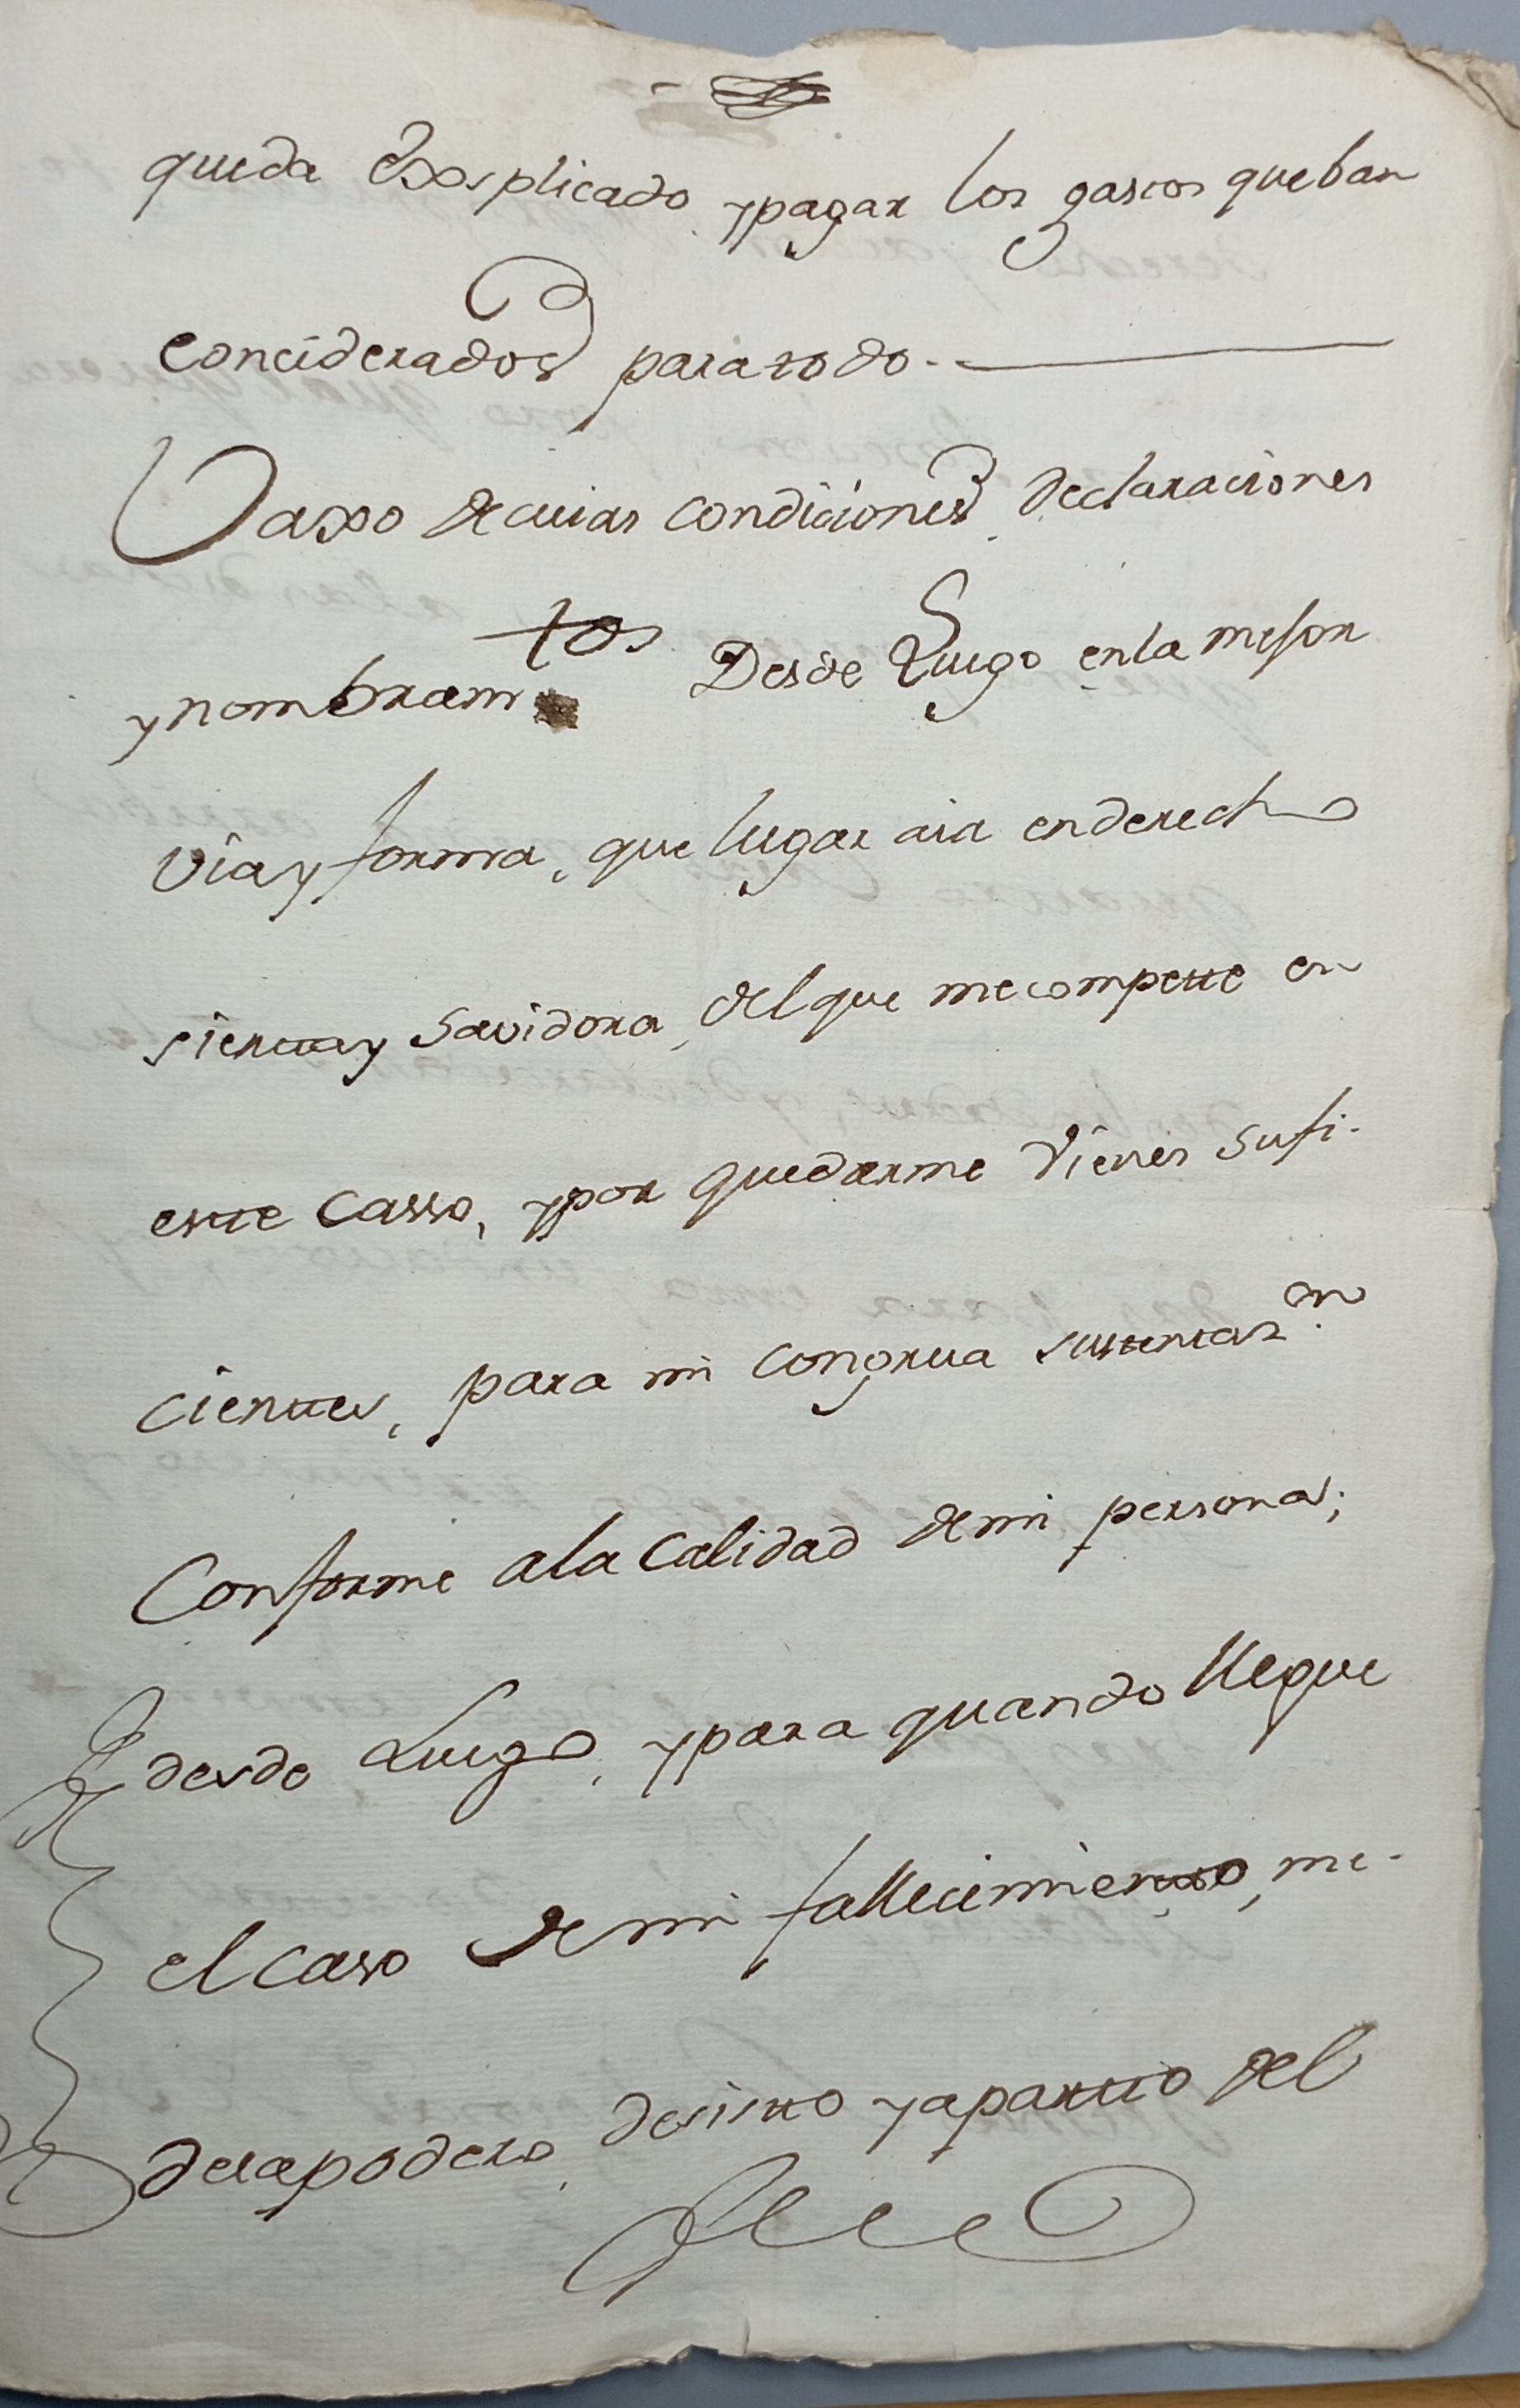 queda exsplicado, y pagar los gastos que ban
conciderados para todo.
Vaxo de cuias condiciones, declaraciones
y nombramtos Desde Luego en la mejor
via y forma, que lugar aia en derecho
siertta y savidora, del que me compette en
estte casso, y por quedarme vienes sufi-
cienttes, para mi congrua susttentazon
Conforme a la Calidad de mi persona;
desde Luego, y para quando llegue
el caso de mi fallecimientto, me-
desapodero, desistto y apartto del